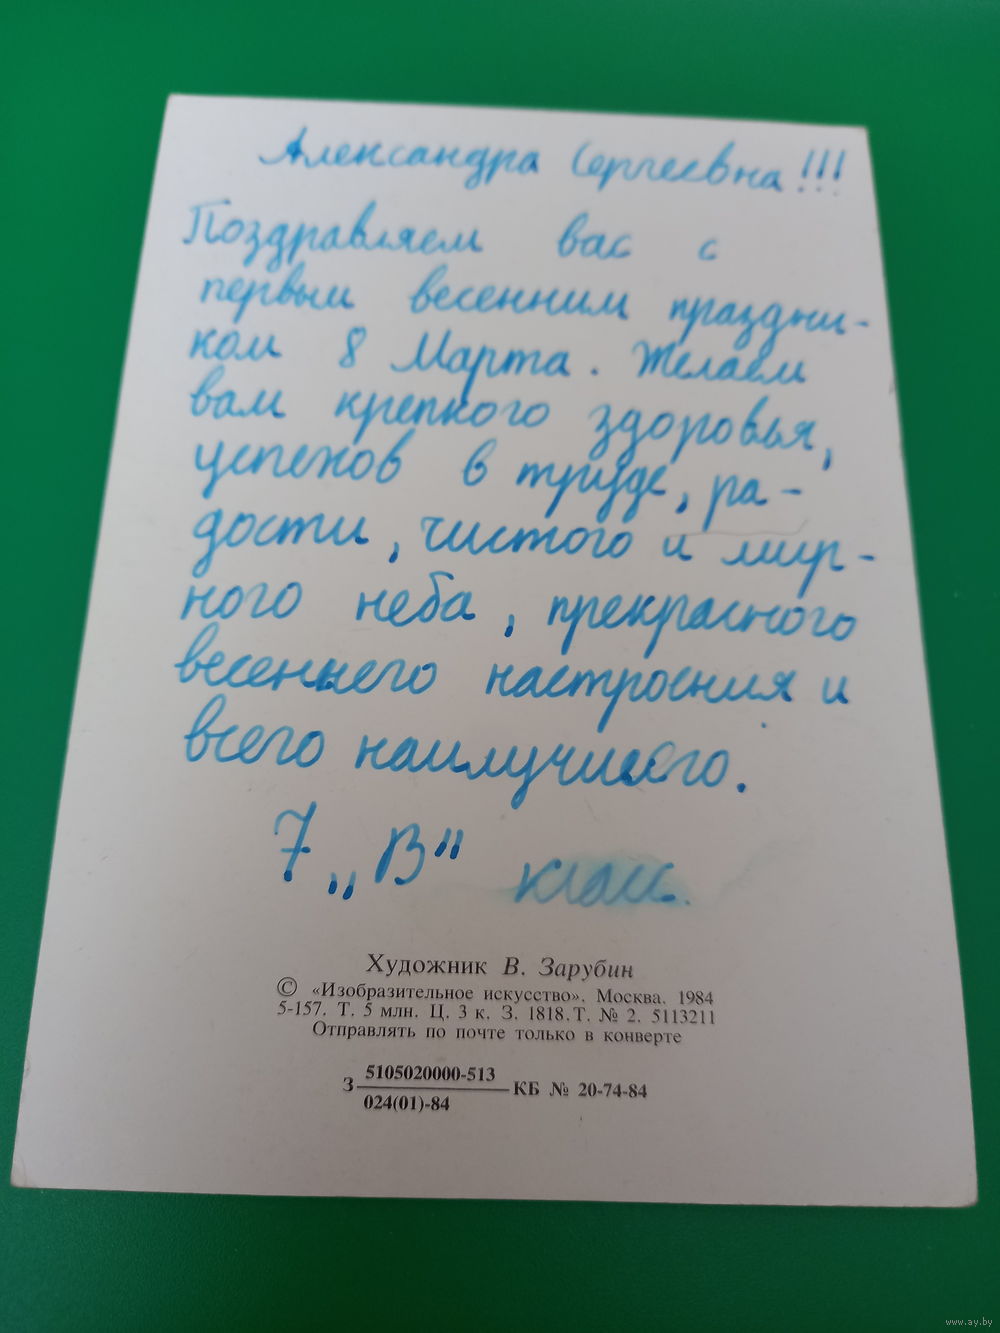 Александра Сергеевна!!!
Поздравляем вас с
первым весенним праздни-
ком 8 Марта. Желаем
вам крепкого здоровья,
успехов в труде, ра-
дости, чистого и мир-
ного неба, прекрасного
весеннего настроения и
всего наилучшего.
7 „В" класс.
Художник В. Зарубин
© «Изобразительное искусство». Москва. 1984
5-157. Т. 5 млн. Ц. 3 к. З. 1818.Т. № 2. 5113211
Отправлять по почте только в конверте
З 5105020000-513 КБ № 20-74-84
024(01)-84
www.ay.by